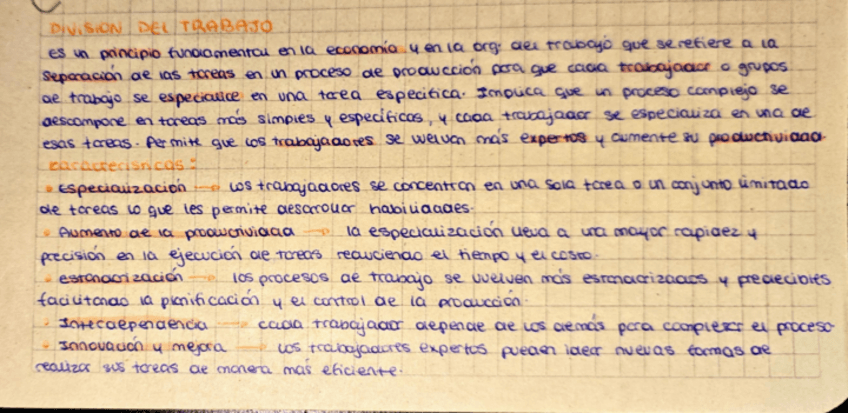 DIVISIÓN DEL TRABAJO
es un principio fundamental en la economía y en la org. del trabajo que se refiere a la
separación de las tareas en un proceso de producción para que cada trabajador o grupos
de trabajo se especialice en una tarea específica. Implica que un proceso complejo se
descompone en tareas más simples y específicas, y cada trabajador se especializa en una de
esas tareas. Permite que los trabajadores se vuelvan más expertos y aumente su productividad.
características:
• Especialización → los trabajadores se concentran en una sola tarea o un conjunto limitado
de tareas lo que les permite desarrollar habilidades.
• Aumento de la productividad → la especialización lleva a una mayor rapidez y
precisión en la ejecución de tareas reduciendo el tiempo y el costo.
• estandarización → los procesos de trabajo se vuelven más estandarizados y predecibles
facilitando la planificación y el control de la producción.
• Interdependencia → cada trabajador depende de los demás para completar el proceso
• Innovación y mejora → los trabajadores expertos pueden idear nuevas formas de
realizar sus tareas de manera más eficiente.